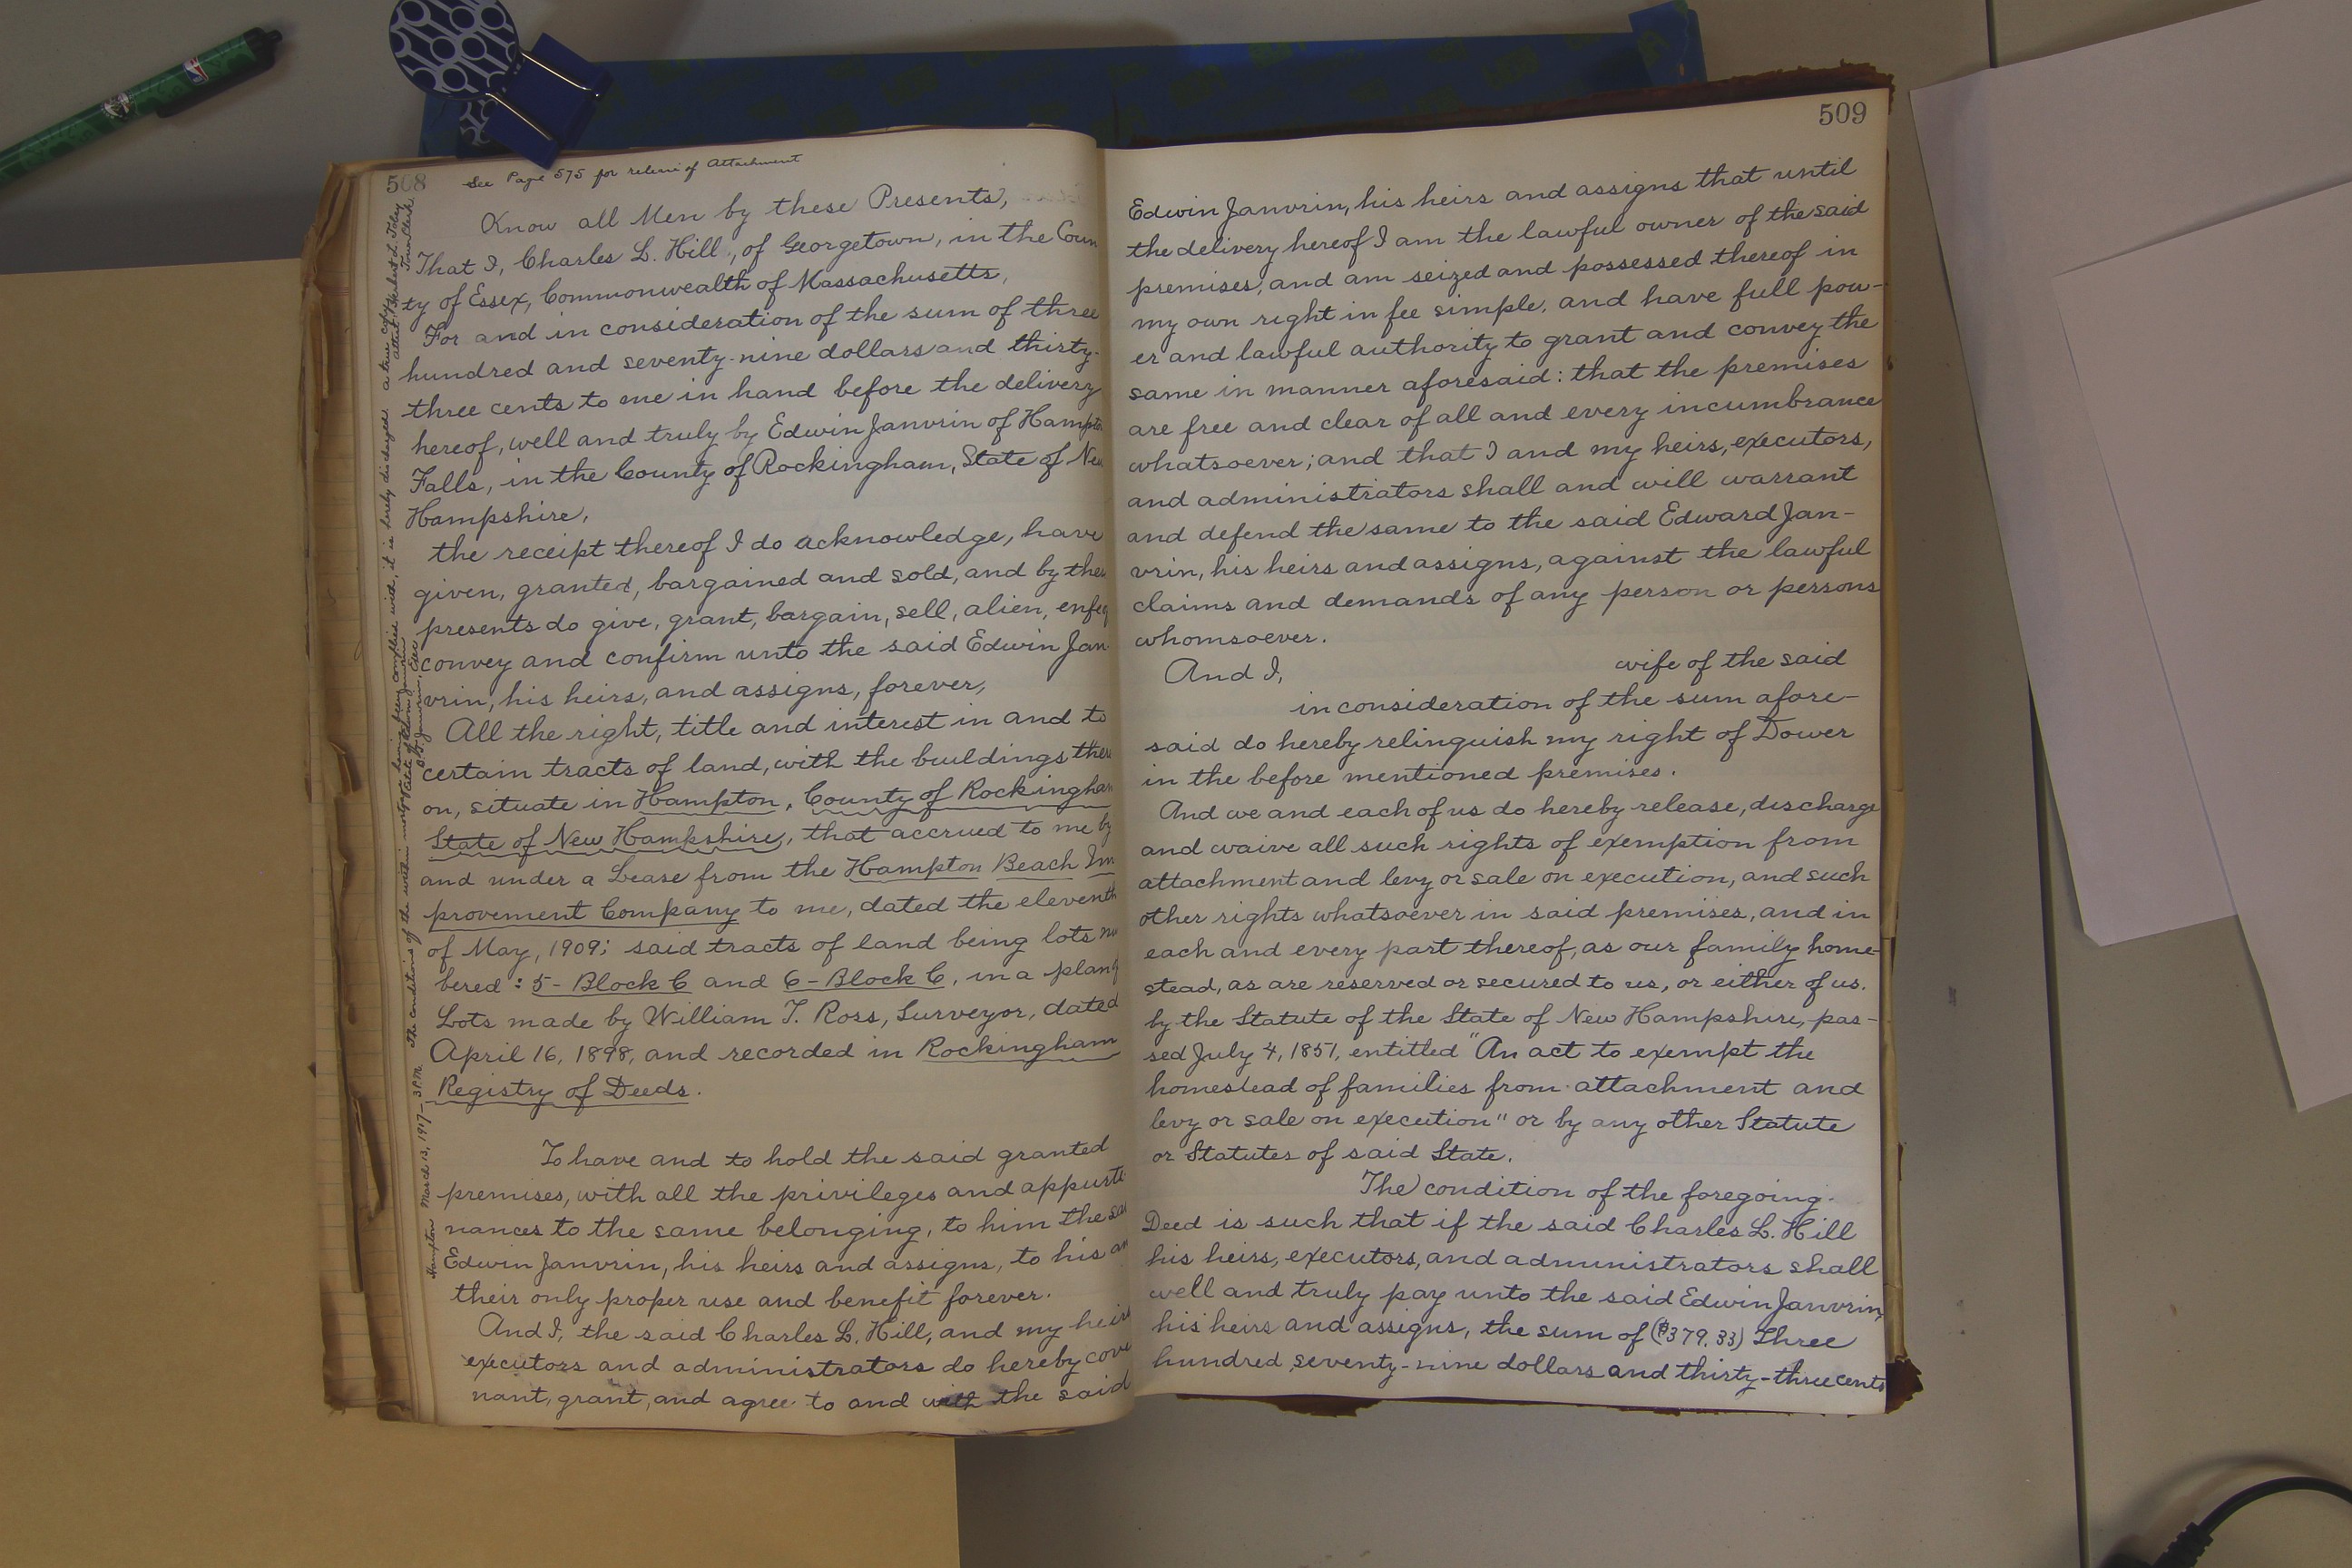 508
See Page 575 for release of Attachment
Know all Men by these Presents,
That I, Charles L. Hill, of Georgetown, in the Coun
ty of Essex, Commonwealth of Massachusetts,
For and in consideration of the sum of three
hundred and seventy-nine dollars and thirty-
three cents to me in hand before the delivery
hereof, well and truly by Edwin Janvrin of Hampto
Falls, in the County of Rockingham, State of New
Hampshire,
the receipt thereof I do acknowledge, have
given, granted, bargained and sold, and by thes
presents do give, grant, bargain, sell, alien, enfeo
convey and confirm unto the said Edwin Jan
vrin, his heirs, and assigns, forever,
All the right, title and interest in and to
certain tracts of land, with the buildings there
on, situate in Hampton, County of Rockingham
State of New Hampshire, that accrued to me by
and under a Lease from the Hampton Beach Im
provement Company to me, dated the eleventh
of May, 1909; said tracts of land being lots nu
bered: 5 - Block C and 6 - Block C, in a plan of
Lots made by William T. Ross, Surveyor, dated
April 16, 1898, and recorded in Rockingham
Registry of Deeds.
To have and to hold the said granted
premises, with all the privileges and appurte
nances to the same belonging, to him the sa
Edwin Janvrin, his heirs and assigns, to his an
their only proper use and benefit forever.
And I, the said Charles L. Hill, and my heirs
executors and administrators do hereby cove
nant, grant, and agree to and with the said
Hampton March 13, 1917 - 3 P.M. The conditions of the within mortgage having been complied with, it is hereby discharged.
Estate of Edwin Janvrin
Janvrin, Exec
a true copy
attest: Herbert L. Tobey
Town Clerk
509
Edwin Janvrin, his heirs and assigns that until
the delivery hereof I am the lawful owner of the said
premises, and am seized and possessed thereof in
my own right in fee simple, and have full pow-
er and lawful authority to grant and convey the
same in manner aforesaid: that the premises
are free and clear of all and every incumbrance
whatsoever; and that I and my heirs, executors,
and administrators shall and will warrant
and defend the same to the said Edward Jan-
vrin, his heirs and assigns, against the lawful
claims and demands of any person or persons
whomsoever.
And I, wife of the said
in consideration of the sum afore-
said do hereby relinquish my right of Dower
in the before mentioned premises.
And we and each of us do hereby release, discharge
and waive all such rights of exemption from
attachment and levy or sale on execution, and such
other rights whatsoever in said premises, and in
each and every part thereof, as our family home-
stead, as are reserved or secured to us, or either of us.
by the Statute of the State of New Hampshire, pas-
sed July 4, 1851, entitled "An act to exempt the
homestead of families from attachment and
levy or sale on execution" or by any other Statute
or Statutes of said State.
The condition of the foregoing
Deed is such that if the said Charles L. Hill
his heirs, executors, and administrators shall
well and truly pay unto the said Edwin Janvrin,
his heirs and assigns, the sum of ($379.33) Three
hundred seventy-nine dollars and thirty-three cents